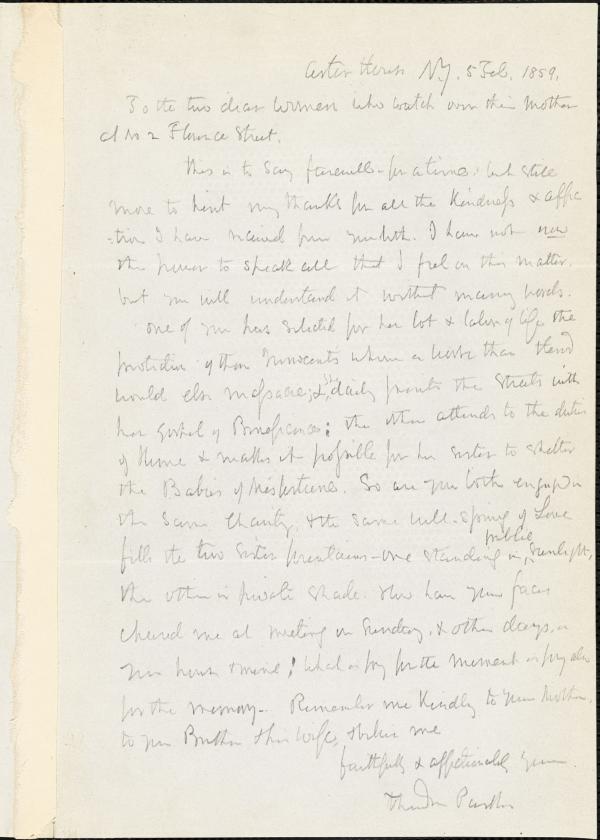 Astor House N.Y. 5 Feb. 1859.
To the two dear Women who watch over their Mother
at No 2 Florence Street.
This is to say farewell for a time: but still
more to hint my thanks for all the Kindness & affec
-tion I have received from you both. I have not now
the power to speak all that I feel on this matter.
but you will understand it without many words.
One of you has selected for her lot & labor of life the
protection of those Innocents whom a worse than Herod
would else massacre; & she daily prints the Streets with
her gospel of Beneficence: the other attends to the duties
of Home & makes it possible for her Sister to shelter
the Babies of Misfortune. So are you both engaged in
the same Charity, & the same well-spring of Love
fills the two Sister fountains - one standing in public Sunlight,
the other in private shade. How have your faces
cheered me at meeting on Sunday, & other days, in
your house & mine! What is joy for the moment is joy also
for the memory - Remember me Kindly to your Mother,
to your Brother & his wife, & believe me
faithfully & affectionately yours
Theodore Parker